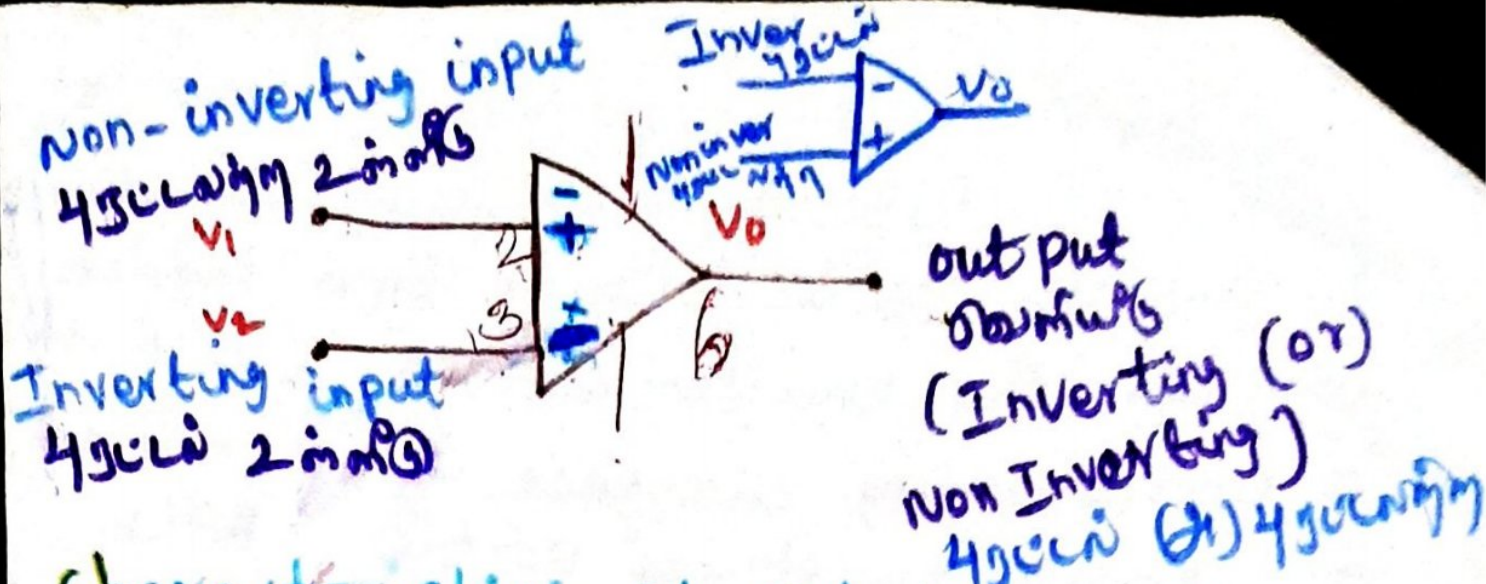 Non-inverting input
புரட்டலற்ற உள்ளீடு
V1
V2
Inverting input
புரட்டல் உள்ளீடு
2
3
-
+
6
V0
Inver
புரட்டல்
-
Non inver
+
V0
output
வெளியீடு
(Inverting (or)
Non Inverting)
புரட்டல் (அ) புரட்டலற்ற